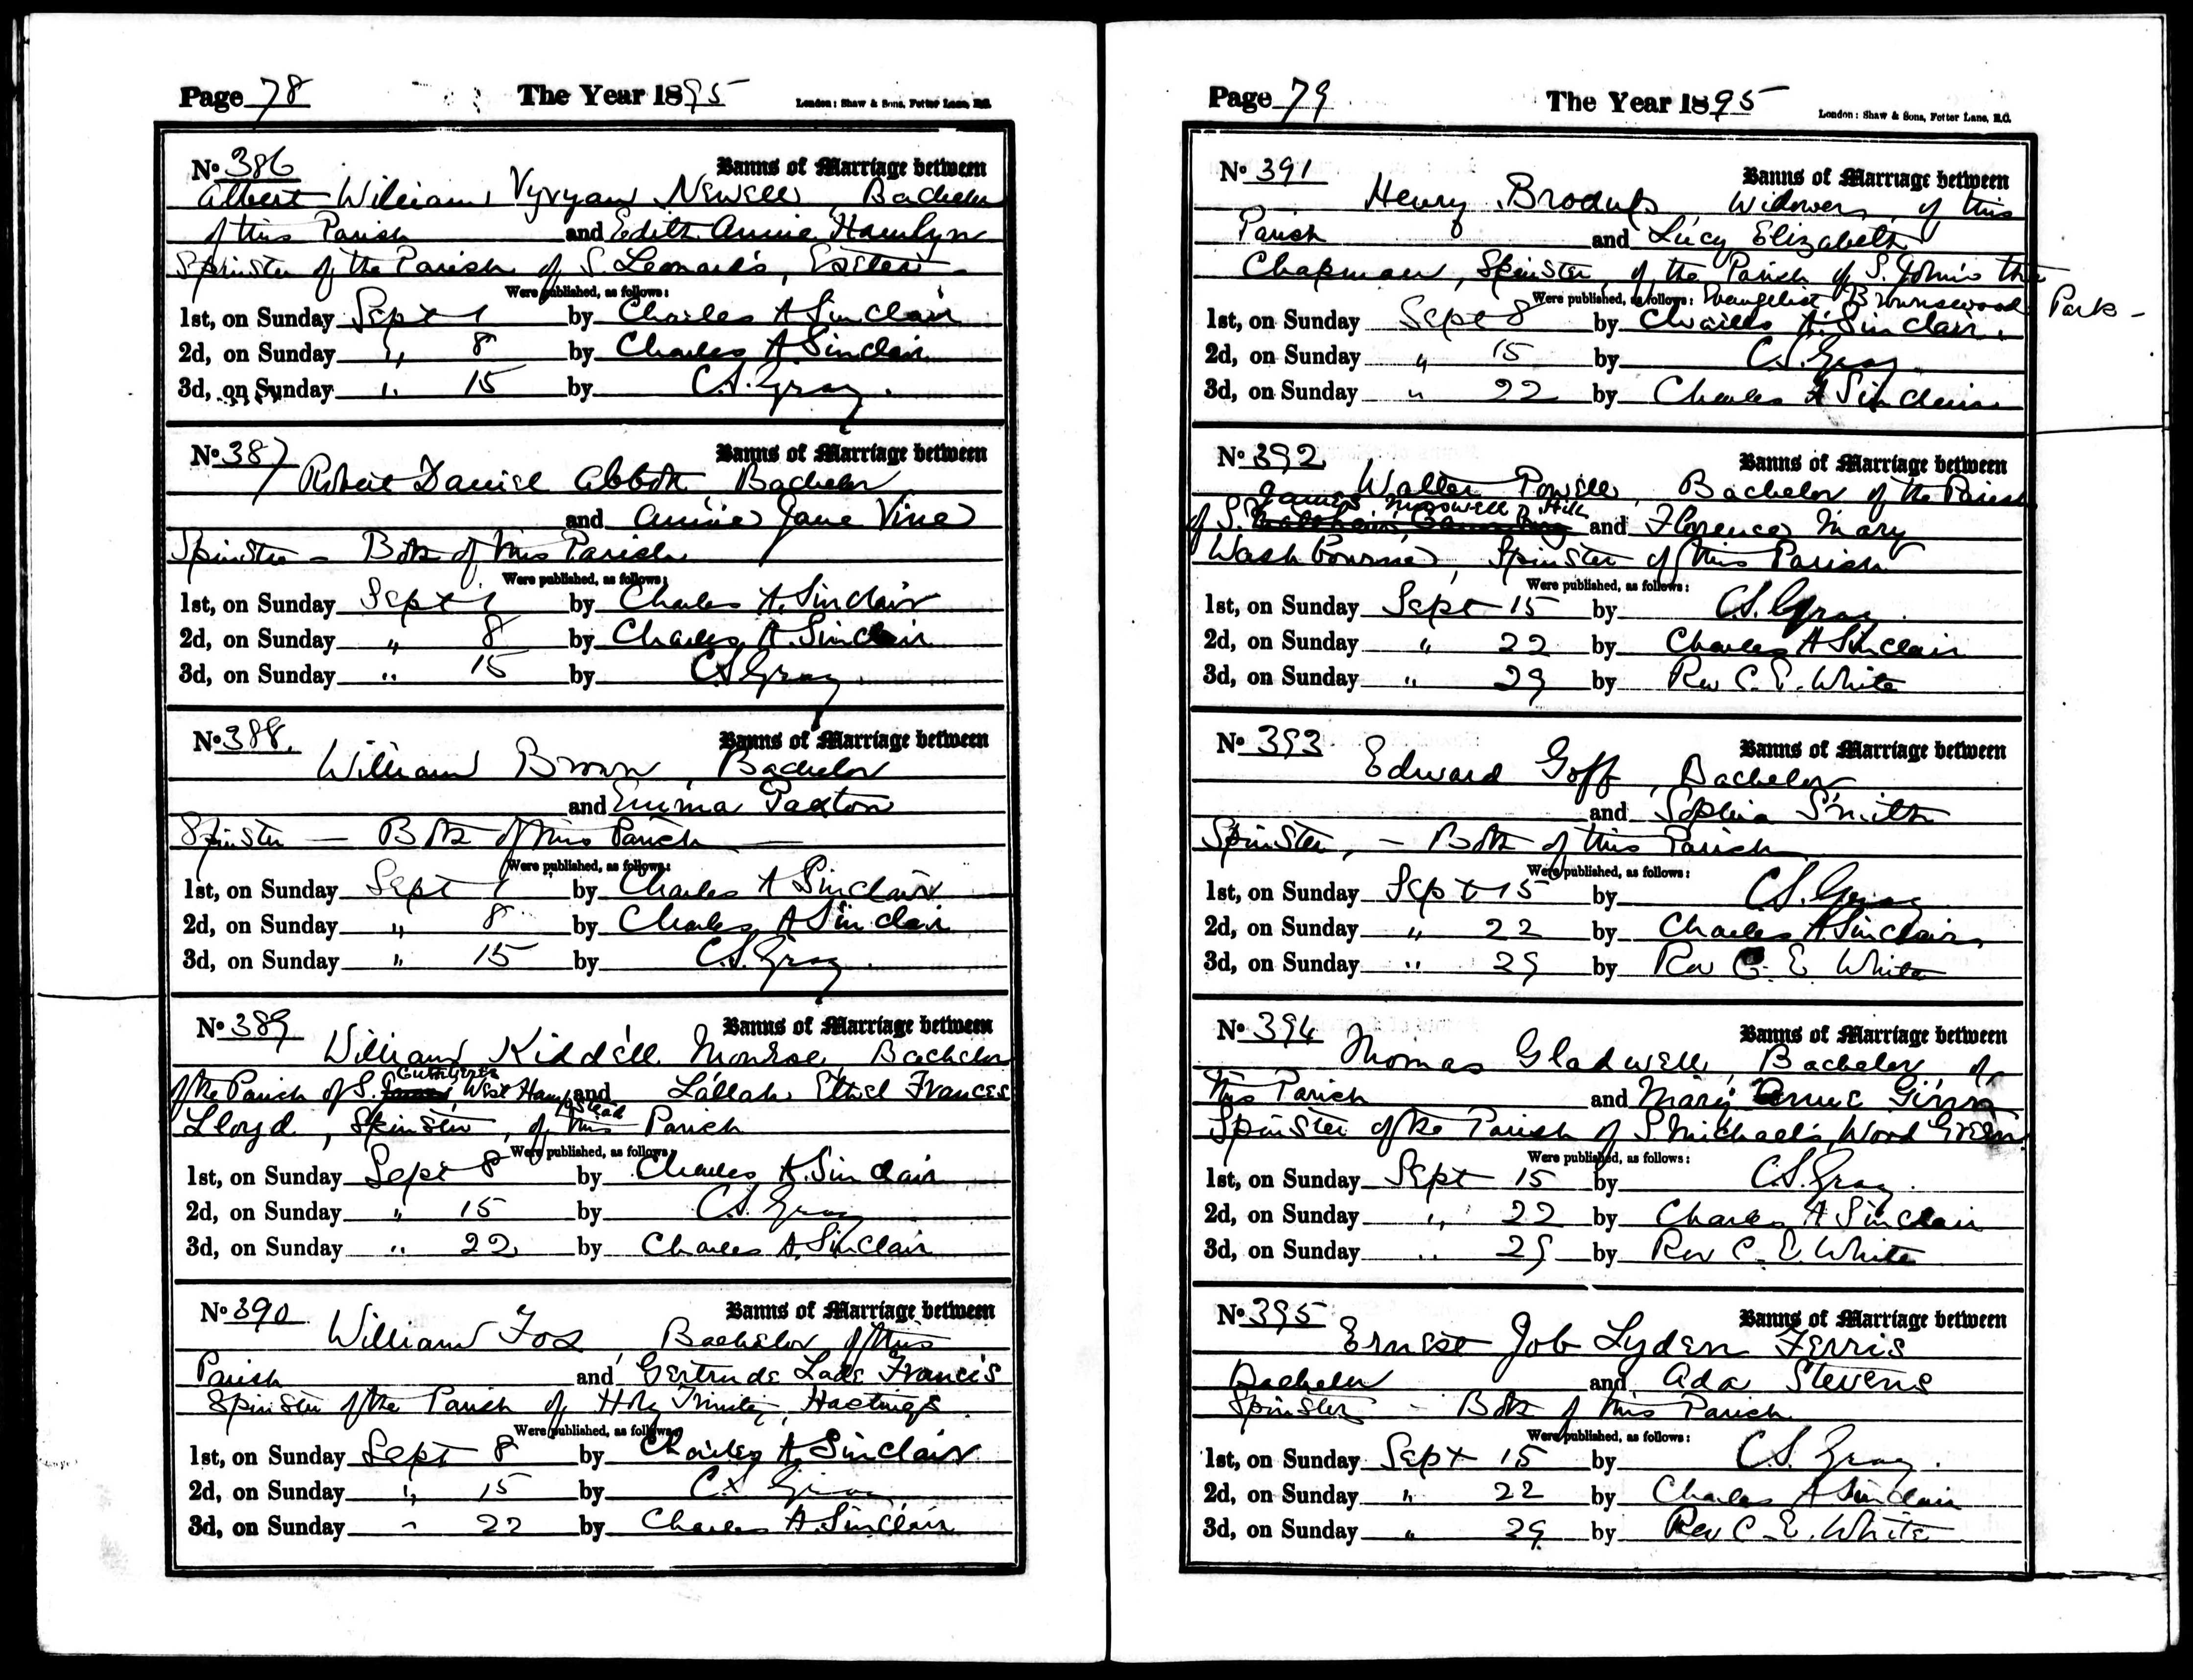 Page 78 The Year 1895 London: Shaw & Sons, Fetter Lane, E.C.
No. 386 Banns of Marriage between
Albert William Vyvyan Newell, Bachelor
of this Parish and Edith Annie Hamlyn
Spinster of the Parish of S. Leonard's, Exeter
Were published, as follows:
1st, on Sunday Sept 1 by Charles A Sinclair
2d, on Sunday " 8 by Charles A Sinclair
3d, on Sunday " 15 by C.S. Gray.
No. 387 Banns of Marriage between
Robert Daniel Abbott, Bachelor
and Annie Jane Vine
Spinster - Both of this Parish
Were published, as follows:
1st, on Sunday Sept 1 by Charles A. Sinclair
2d, on Sunday " 8 by Charles A. Sinclair
3d, on Sunday " 15 by C.S. Gray
No. 388. Banns of Marriage between
William Brown, Bachelor
and Emma Paxton
Spinster — Both of this Parish —
Were published, as follows:
1st, on Sunday Sept 1 by Charles A Sinclair
2d, on Sunday " 8 by Charles A Sinclair
3d, on Sunday " 15 by C.S. Gray.
No. 389 Banns of Marriage between
William Kiddell Monroe, Bachelor
of the Parish of S. Cuthbert's West Hampstead and Lallah Ethel Frances
Lloyd, Spinster, of this Parish
Were published, as follows:
1st, on Sunday Sept 8 by Charles A. Sinclair
2d, on Sunday " 15 by C.S. Gray
3d, on Sunday " 22 by Charles A. Sinclair
No. 390 Banns of Marriage between
William Fox, Bachelor of this
Parish and Gertrude Lade Francis
Spinster of the Parish of Holy Trinity, Hastings
Were published, as follows:
1st, on Sunday Sept 8 by Charles A Sinclair
2d, on Sunday " 15 by C.S. Gray
3d, on Sunday " 22 by Charles A. Sinclair
Page 79 The Year 1895 London: Shaw & Sons, Fetter Lane, E.C.
No. 391 Banns of Marriage between
Henry Widower, of this
Parish and Lucy Elizabeth
Chapman, Spinster, of the Parish of S. John's the
Were published, as follows: Evangelist Brownswood Park -
1st, on Sunday Sept 8 by Charles A. Sinclair.
2d, on Sunday " 15 by C.S. Gray
3d, on Sunday " 22 by Charles A Sinclair
No. 392 Banns of Marriage between
Walter Powell, Bachelor of the Parish
of S. James Muswell Hill and Florence Mary
Washbourne, Spinster of this Parish
Were published, as follows:
1st, on Sunday Sept 15 by C.S. Gray.
2d, on Sunday " 22 by Charles A Sinclair
3d, on Sunday " 29 by Rev C. E. White
No. 393 Banns of Marriage between
Edward Goff, Bachelor
and Sophia Smith
Spinster, - Both of this Parish
Were published, as follows:
1st, on Sunday Sept 15 by C.S. Gray
2d, on Sunday " 22 by Charles A. Sinclair
3d, on Sunday " 29 by Rev C. E White
No. 394 Banns of Marriage between
Thomas Gladwell, Bachelor of
this Parish and Mary Annie Ginn
Spinster of the Parish of S. Michael's, Wood Green
Were published, as follows:
1st, on Sunday Sept 15 by C.S. Gray.
2d, on Sunday " 22 by Charles A Sinclair
3d, on Sunday " 29 by Rev C. E. White
No. 395 Banns of Marriage between
Ernest Job Lyden Ferris
Bachelor and Ada Stevens
Spinster - Both of this Parish
Were published, as follows:
1st, on Sunday Sept 15 by C.S. Gray.
2d, on Sunday " 22 by Charles A Sinclair
3d, on Sunday " 29 by Rev C. E. White